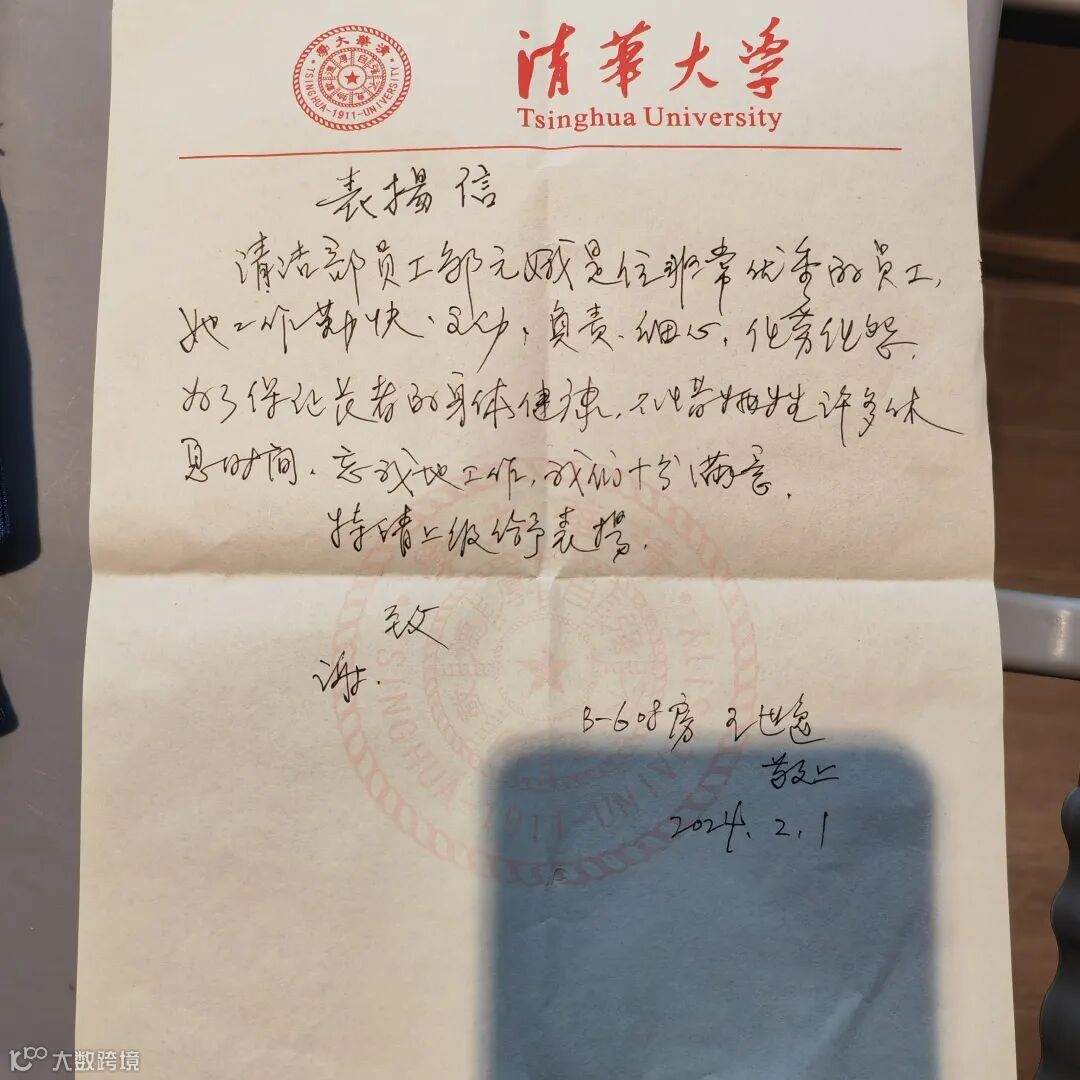 清華大學
TSINGHUA-1911-UNIVERSITY
自强不息厚德載物
清華大学
Tsinghua University
表揚信
清洁部员工郭元娥是位非常优秀的员工,
她工作勤快、主动、负责、细心,任劳任怨,
为了保证长者的身体健康,不惜牺牲许多休
息时间,忘我地工作,我们十分满意.
特请上级给予表揚.
致
谢.
B-608房 王世逸
敬上
2024.2.1
TSINGHUA-1911-UNIVERSITY
大数跨境